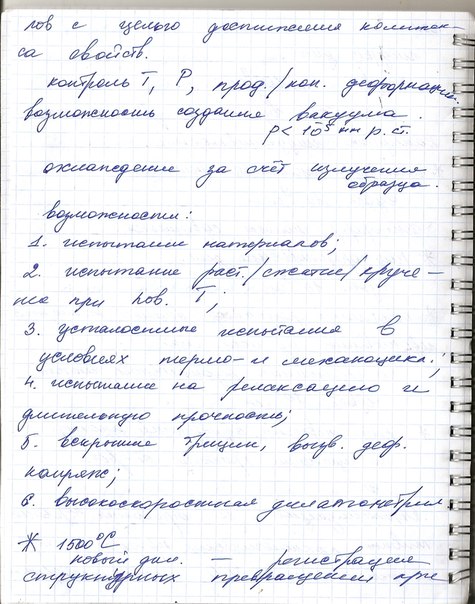 лов с целью достижения комплек-
са свойств.
контроль T, P, прод./поп. деформации.
возможность создания вакуума.
P < 10⁻⁵ мм р. ст.
охлаждение за счёт излучения
образца.
возможности:
1. испытание материалов;
2. испытание раст./сжатие/круче-
ние при пов. T;
3. усталостные испытания в
условиях термо- и механоцикл.;
4. испытание на релаксацию и
длительную прочность;
5. вскрытие трещин, деф.
напряж;
6. высокоскоростная дилатометрия.
* 1500°C
новый дил. — регистрация
структурных превращений при